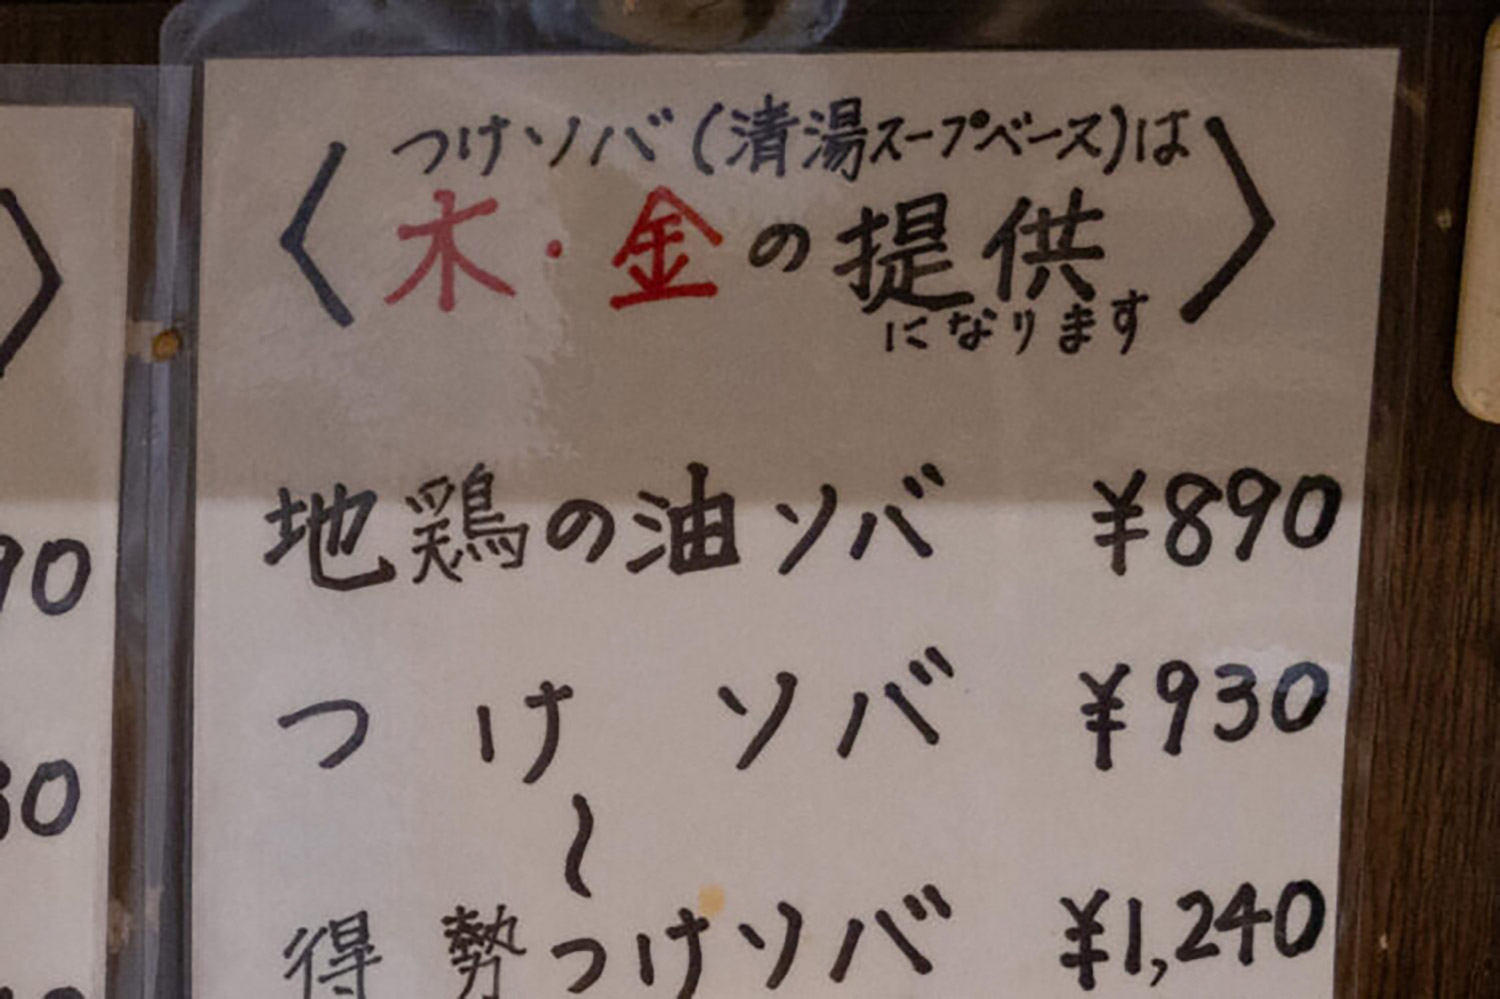 つけソバ(清湯スープベース)は
〈木・金の提供〉
になります
地鶏の油ソバ ¥890
つけソバ ¥930
〜
得勢つけソバ ¥1,240
〉
90
30